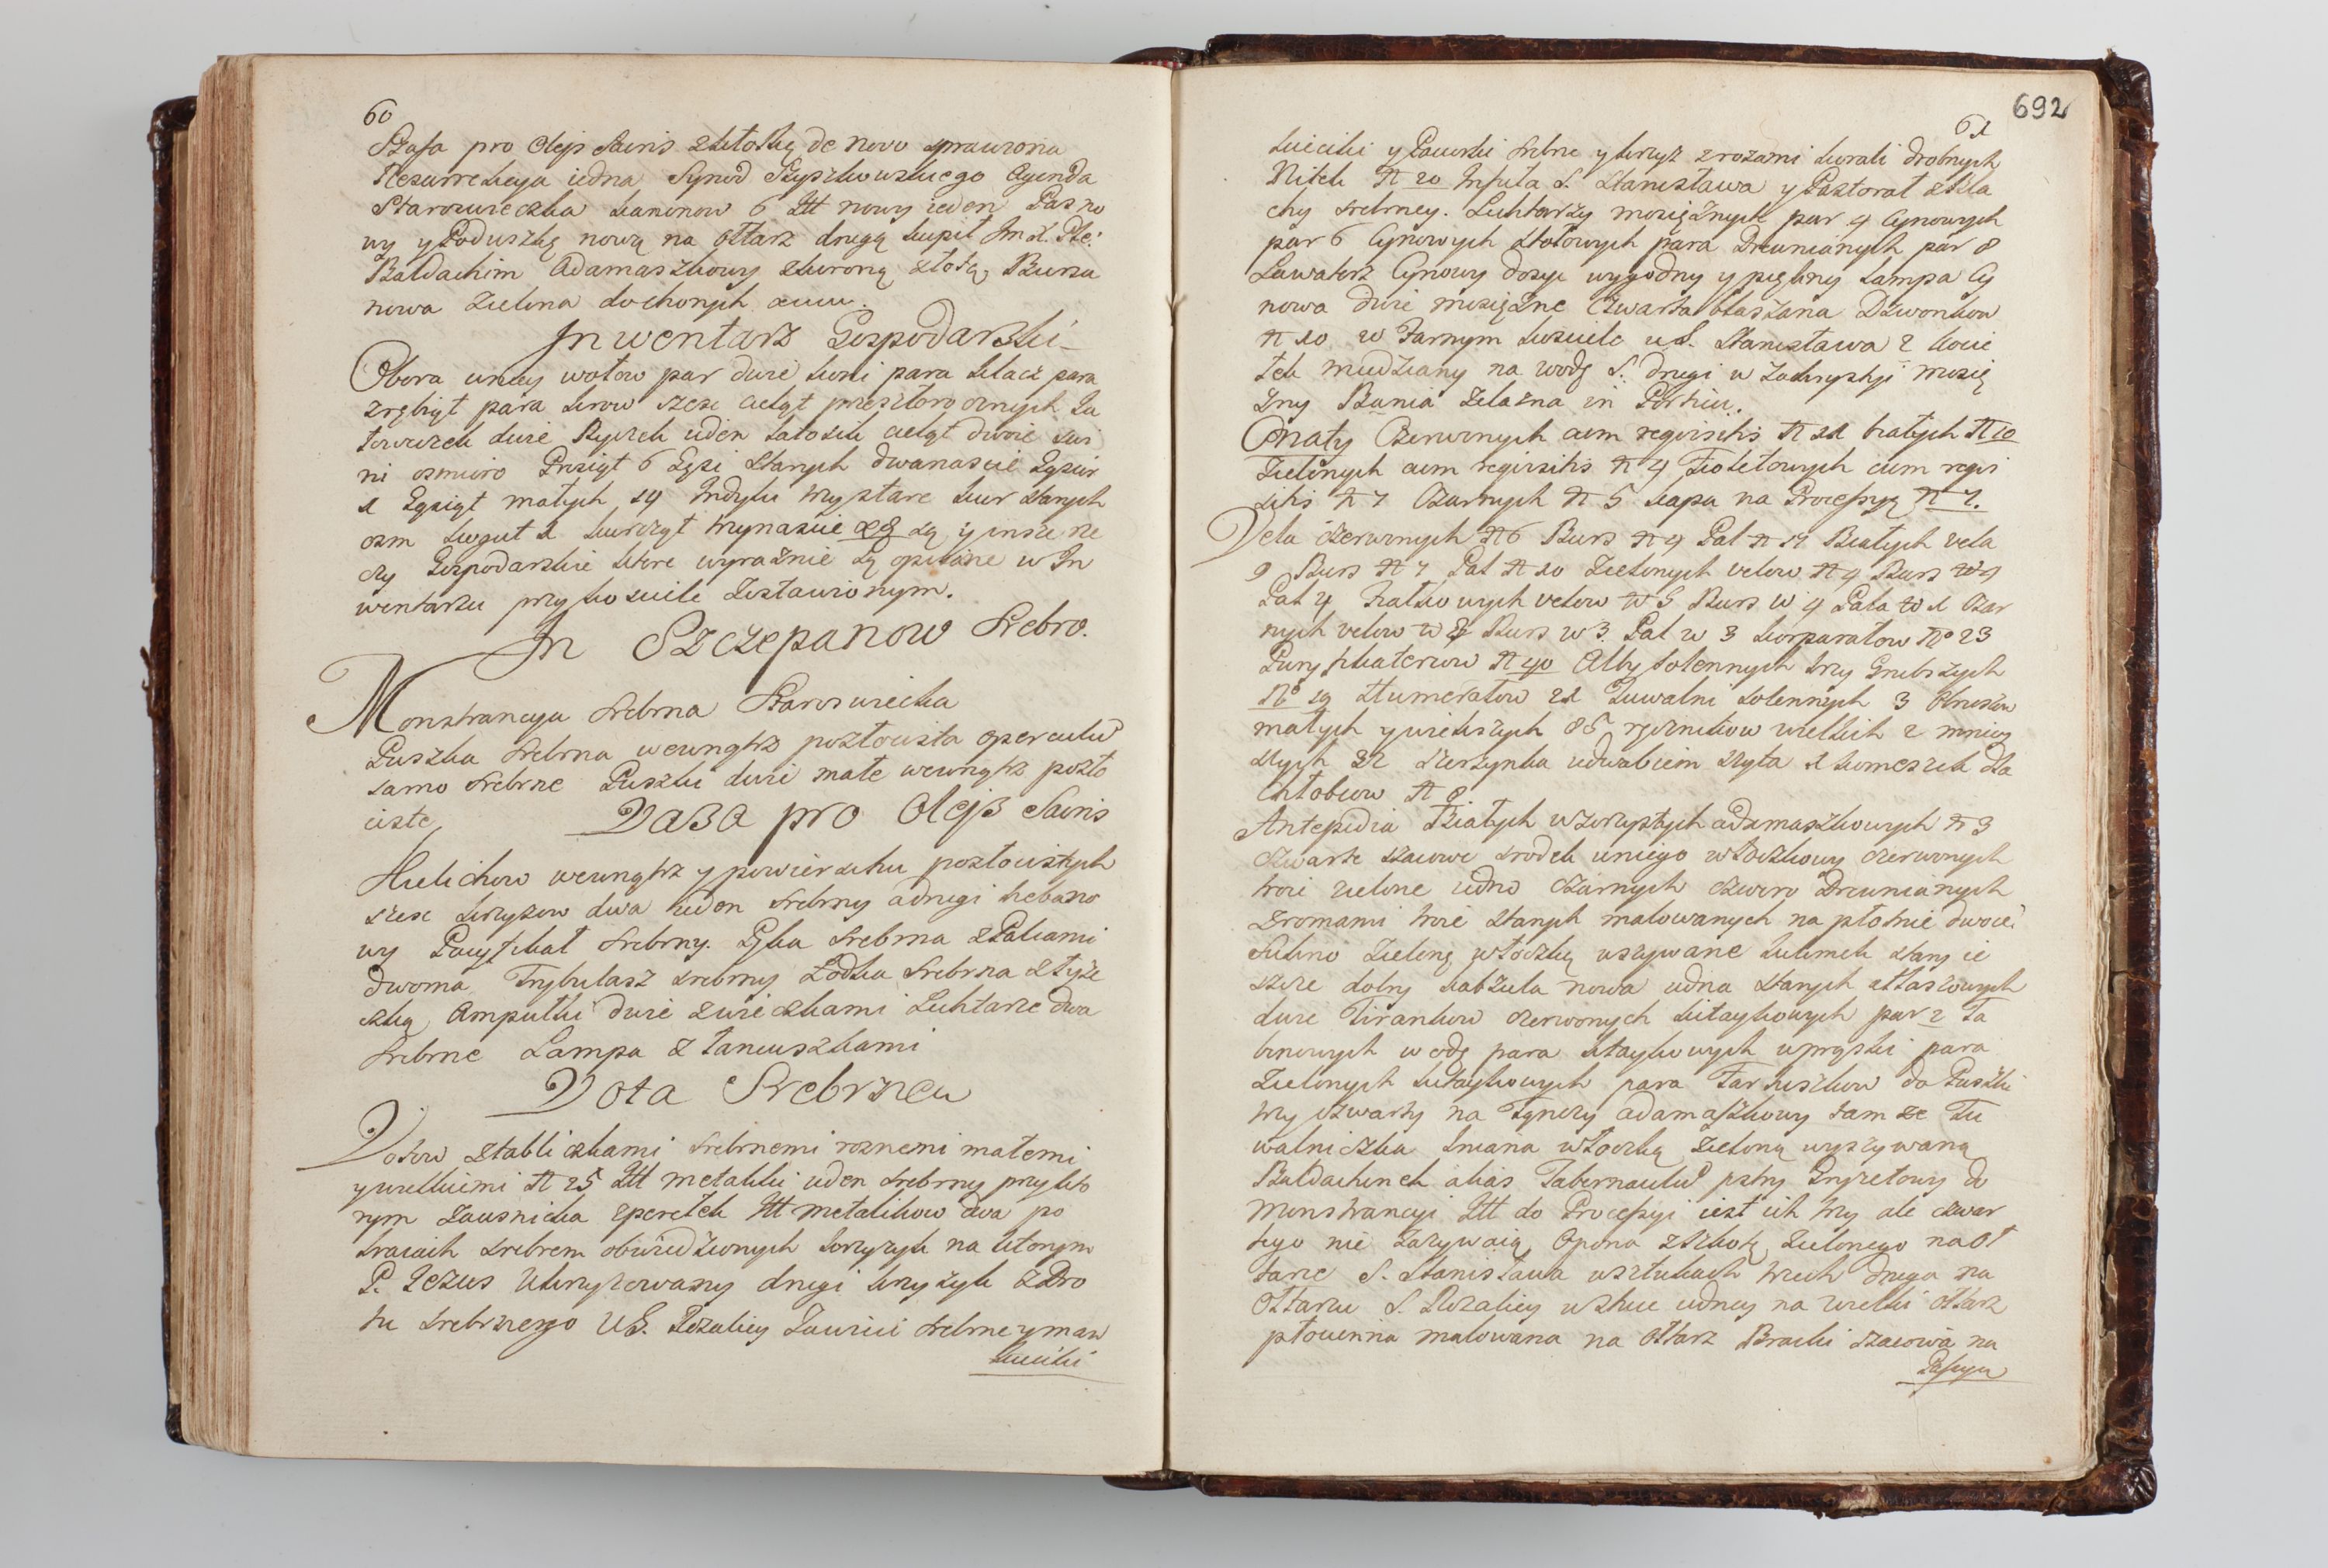 60
Szafa pro Olejs Sacris z kłotką de novo sprawiona
Resurrekcya iedna, Synod Szyszkowskiego Agenda
Staroswiecka kanonow 6 Itt nowy ieden Pas no
wy y Poduszkę nową na Ołtarz drugą kupił Jmx. Ple:
Baldachim Adamaszkowy z koroną złotą, Bursa
nowa Zielona do chorych
Inwentarz Gospodarski
Obora wołow par dwie koni para klacz para
zrębiąt para krow szesc cieląt przeszłorocznych Ja
łowiczek dwie Byczek ieden latosich cieląt dwoie swi
ni osmioro Prosiąt 6 Gęsi starych dwanascie Gąsior
1 Gęsiąt małych 14 Indyki trzy stare kur starych
osm kogut 1 kurcząt trzynascie są y insze rze
czy Gospodarskie ktore wyraznie są opisane w In
wentarzu przy kosciele Zostawionym.
In Szczepanow Srebro.
Monstrancya srebrna Staroswiecka
Puszka srebrna wewnątrz pozłocista operculu
samo srebrne Puszki dwie małe wewnątrz pozło
ciste, Vasa pro Olejs Sacris
Kielichow wewnątrz y powierzchu pozłocistych
szesc krzyzow dwa ieden srebrny a drugi hebano
wy Pacyfikał srebrny. Łyka srebrna z Palkami
dwoma Trybularz srebrny Łodka srebrna z łyze
czką, Ampułki dwie z wieczkami Lichtarze dwa
srebrne Lampa z łancuszkami
Vota Srebrzeu
Votow z tabliczkami srebrnemi roznemi małemi
y wielkiemi N 25 Itt metaliki ieden srebrny przy kto
rym Zausnicka z perełek Itt metalikow dwa po
kraiach srebrem obwiedzionych krzyzyk na ktorym
P. Jezus Ukrzyzowany drugi krzyzyk z Dro
tu srebrnego U S. Rozaliey srebrne y man
kieciki
692
61
kieciki y Paciorki srebrne y krzyz z rozami korali drobnych
Nitek N 20 Infuła S. Stanisława y Pastorał z bla
chy srebrney. Lichtarzy mosięznych par 4 Cynowych
par 6 Cynowych stołowych para Drewnianych par 8
Lawaterz Cynowy dosyc wygodny y piękny Lampa Cy
nowa dwie mosięzne Czwarta blaszana Dzwonkow
N 10 w Farnym kosciele u S. Stanisława 2 kocie
łek miedziany na wodę S. drugi w Zakrystyi mosię
zny Bania Zelazna in Porticu.
Ornaty Czerwonych cum requisitis N 11 białych N 10
Zielonych cum requisitis N 4 Fioletowych cum requi
sitis N 7 Czarnych N 5 kapa na Processyą N 7.
Vela czerwonych N 6 Burs N 4 Pal N 14 Białych vela
9 Burs N 7 Pal N 10 Zielonych velow N 4 Burs N 4
Pal 4 Fiałkowych velow N 5 Burs N 4 Pala N 1 Czar
nych velow N Burs N 3. Pal N 3 korporałow No 23
Puryfikaterzow N 40 Alby solennych trzy Grubszych
No 19 Humerałow 21 Tuwalni solennych 3 Obrusow
małych y wiekszych 85 ręcznikow wielkich 2 mniey
szych 32 szerzynka iedwabiem szyta 1 komeszek dla
Chłobcow N 8
Antepedia Białych wzorzystych adamaszkowych N 3
czwarte szacowe srodek u niego włoczkowy czerwonych
troie zielone iedno czarnych czworo Drewnianych
z romami troie starych malowanych na płotnie dwoie
Sukno Zieloną włoczką uszywane kilimek stary ie
szcze dobry kabzula nowa iedna starych atłasowych
dwie Firankow czerwonych kitaykowych par 2 Ta
binowych w odę para kitaykowych w prąszki para
Zielonych kitaykowych para Fartuszkow do Puszki
trzy czwarty na Tynczy adamaszkowy tam ze Tu
walniczka lniana włoczką zieloną wyszywana
Baldachinek alias Tabernaculu pstry Gryzetowy do
Monstrancyi Itt do Processyi iest ich trzy ale czwar
tego nie Zazywaią, Opona z szkotu zielonego na Oł
tarze S. Stanisława w sztukach trzech druga na
Ołtarzu S. Rozaliey w sztuce iedney na wielki Ołtarz
płocienna malowana na Ołtarz Bracki szacowa na
Passyyu